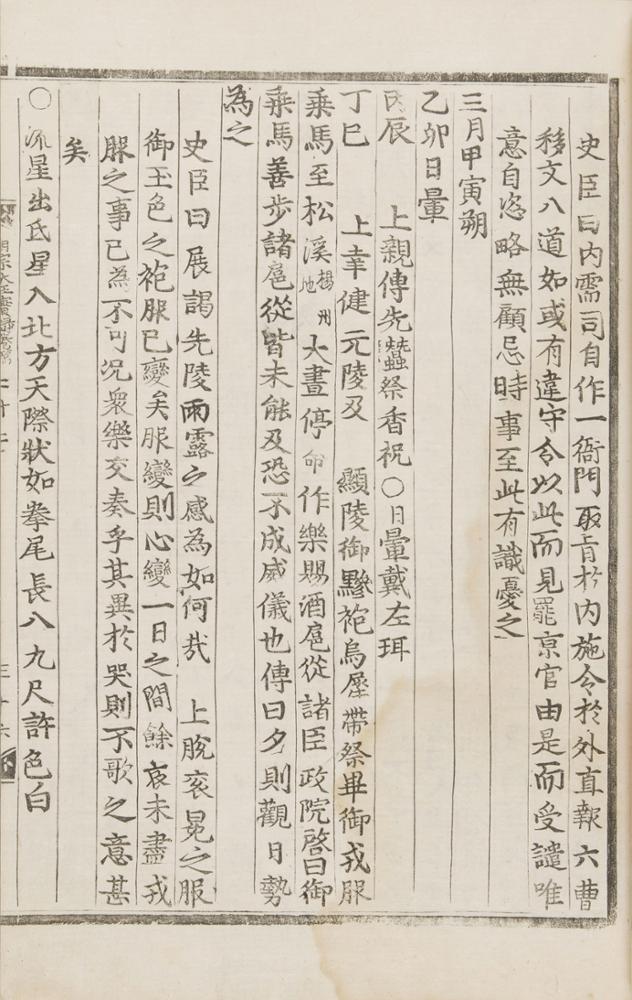 史臣曰內需司自作一衙門取旨於內施令於外直報六曹
移文八道如或有違守令以此而見罷京官由是而受譴唯
意自恣略無顧忌時事至此有識憂之
三月甲寅朔
乙卯日暈
丙辰 上親傳先蠶祭香祝○日暈戴左珥
丁巳 上幸健元陵及 顯陵御黲袍烏犀帶祭畢御戎服
乘馬至松溪楊州地大晝停命作樂賜酒扈從諸臣政院啓曰御
乘馬善步諸扈從皆未能及恐不成威儀也傳曰夕則觀日勢
為之
史臣曰展謁先陵雨露之感為如何哉 上脫衮冕之服
御玉色之袍服已變矣服變則心變一日之間餘哀未盡戎
服之事已為不可況衆樂交奏乎其異於哭則不歌之意甚
矣
○流星出氐星入北方天際狀如拳尾長八九尺許色白